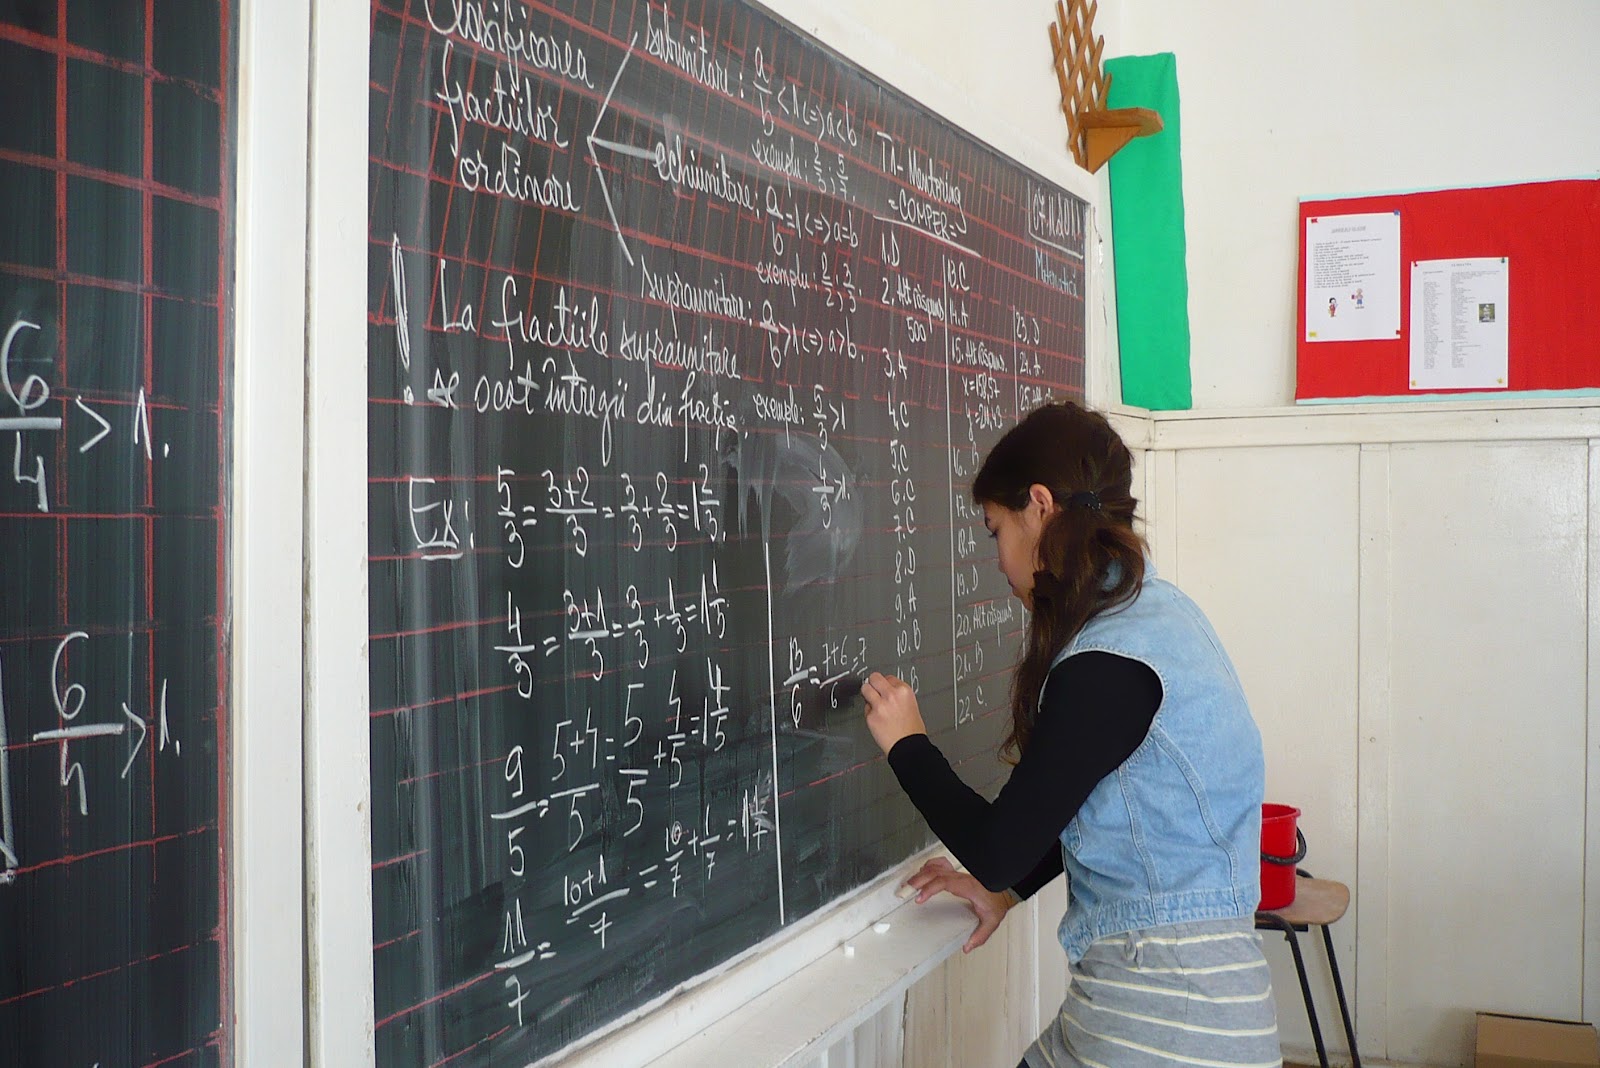 6/4 > 1.
6/5 > 1.
Clasificarea
fractiilor
ordinare
subunitare: a/b < 1 <=> a < b
exemplu: 2/3; 5/7.
echiunitare: a/b = 1 <=> a = b
exemplu: 2/2; 3/3.
supraunitare: a/b > 1 <=> a > b.
exemple: 5/3 > 1
4/3 > 1.
La fracțiile supraunitare
se scot întregii din fracție.
Ex: 5/3 = 3+2/3 = 3/3 + 2/3 = 1 2/3.
4/3 = 3+1/3 = 3/3 + 1/3 = 1 1/5.
9/5 = 5+4/5 = 5/5 + 4/5 = 1 4/5
11/7 = 10+1/7 = 10/7 + 1/7 = 1 1/7
13/6 = 7+6/6 = 7
T1- Mentoring
=COMPER=
1. D
2. Alt răspuns
500
3. A
4. C
5. C
6. C
7. C
8. D
9. A
10. B
B
13. C
14. A
15. Alt răspuns.
x=158,57
y=211,43
16. B
17. C
18. A
19. D
20. Alt răspuns.
21. B
22. C.
23. D
24. A
25. Alt
07.11.2011
Matematică